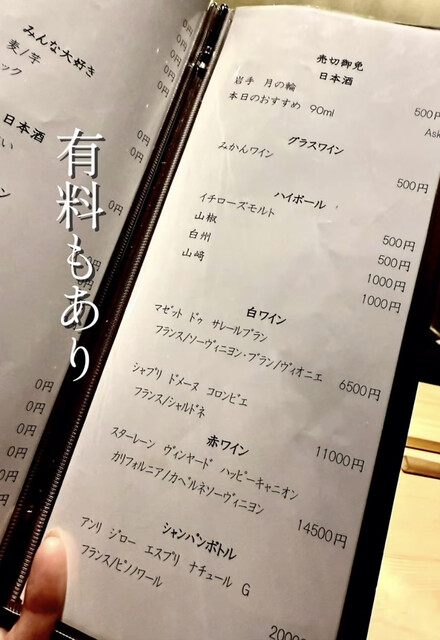 みんな大好き
麦/芋
ック
日本酒
0円
0円
0円
0円
0円
0円
0円
0円
0円
0円
0円
0円
0円
有料もあり
売切御免
日本酒
岩手 月の輪 500円
本日のおすすめ 90ml Ask
グラスワイン
みかんワイン 500円
ハイボール
イチローズモルト 500円
山椒 500円
白州 1000円
山崎 1000円
白ワイン
マゼット ドゥ サレールブラン
フランス/ソーヴィニヨン・ブラン/ヴィオニエ 6500円
シャブリ ドメーヌ コロンビエ
フランス/シャルドネ 11000円
赤ワイン
スターレーン ヴィンヤード ハッピーキャニオン
カリフォルニア/カベルネソーヴィニヨン 14500円
シャンパンボトル
アンリ ジロー エスプリ ナチュール G
フランス/ピノノワール